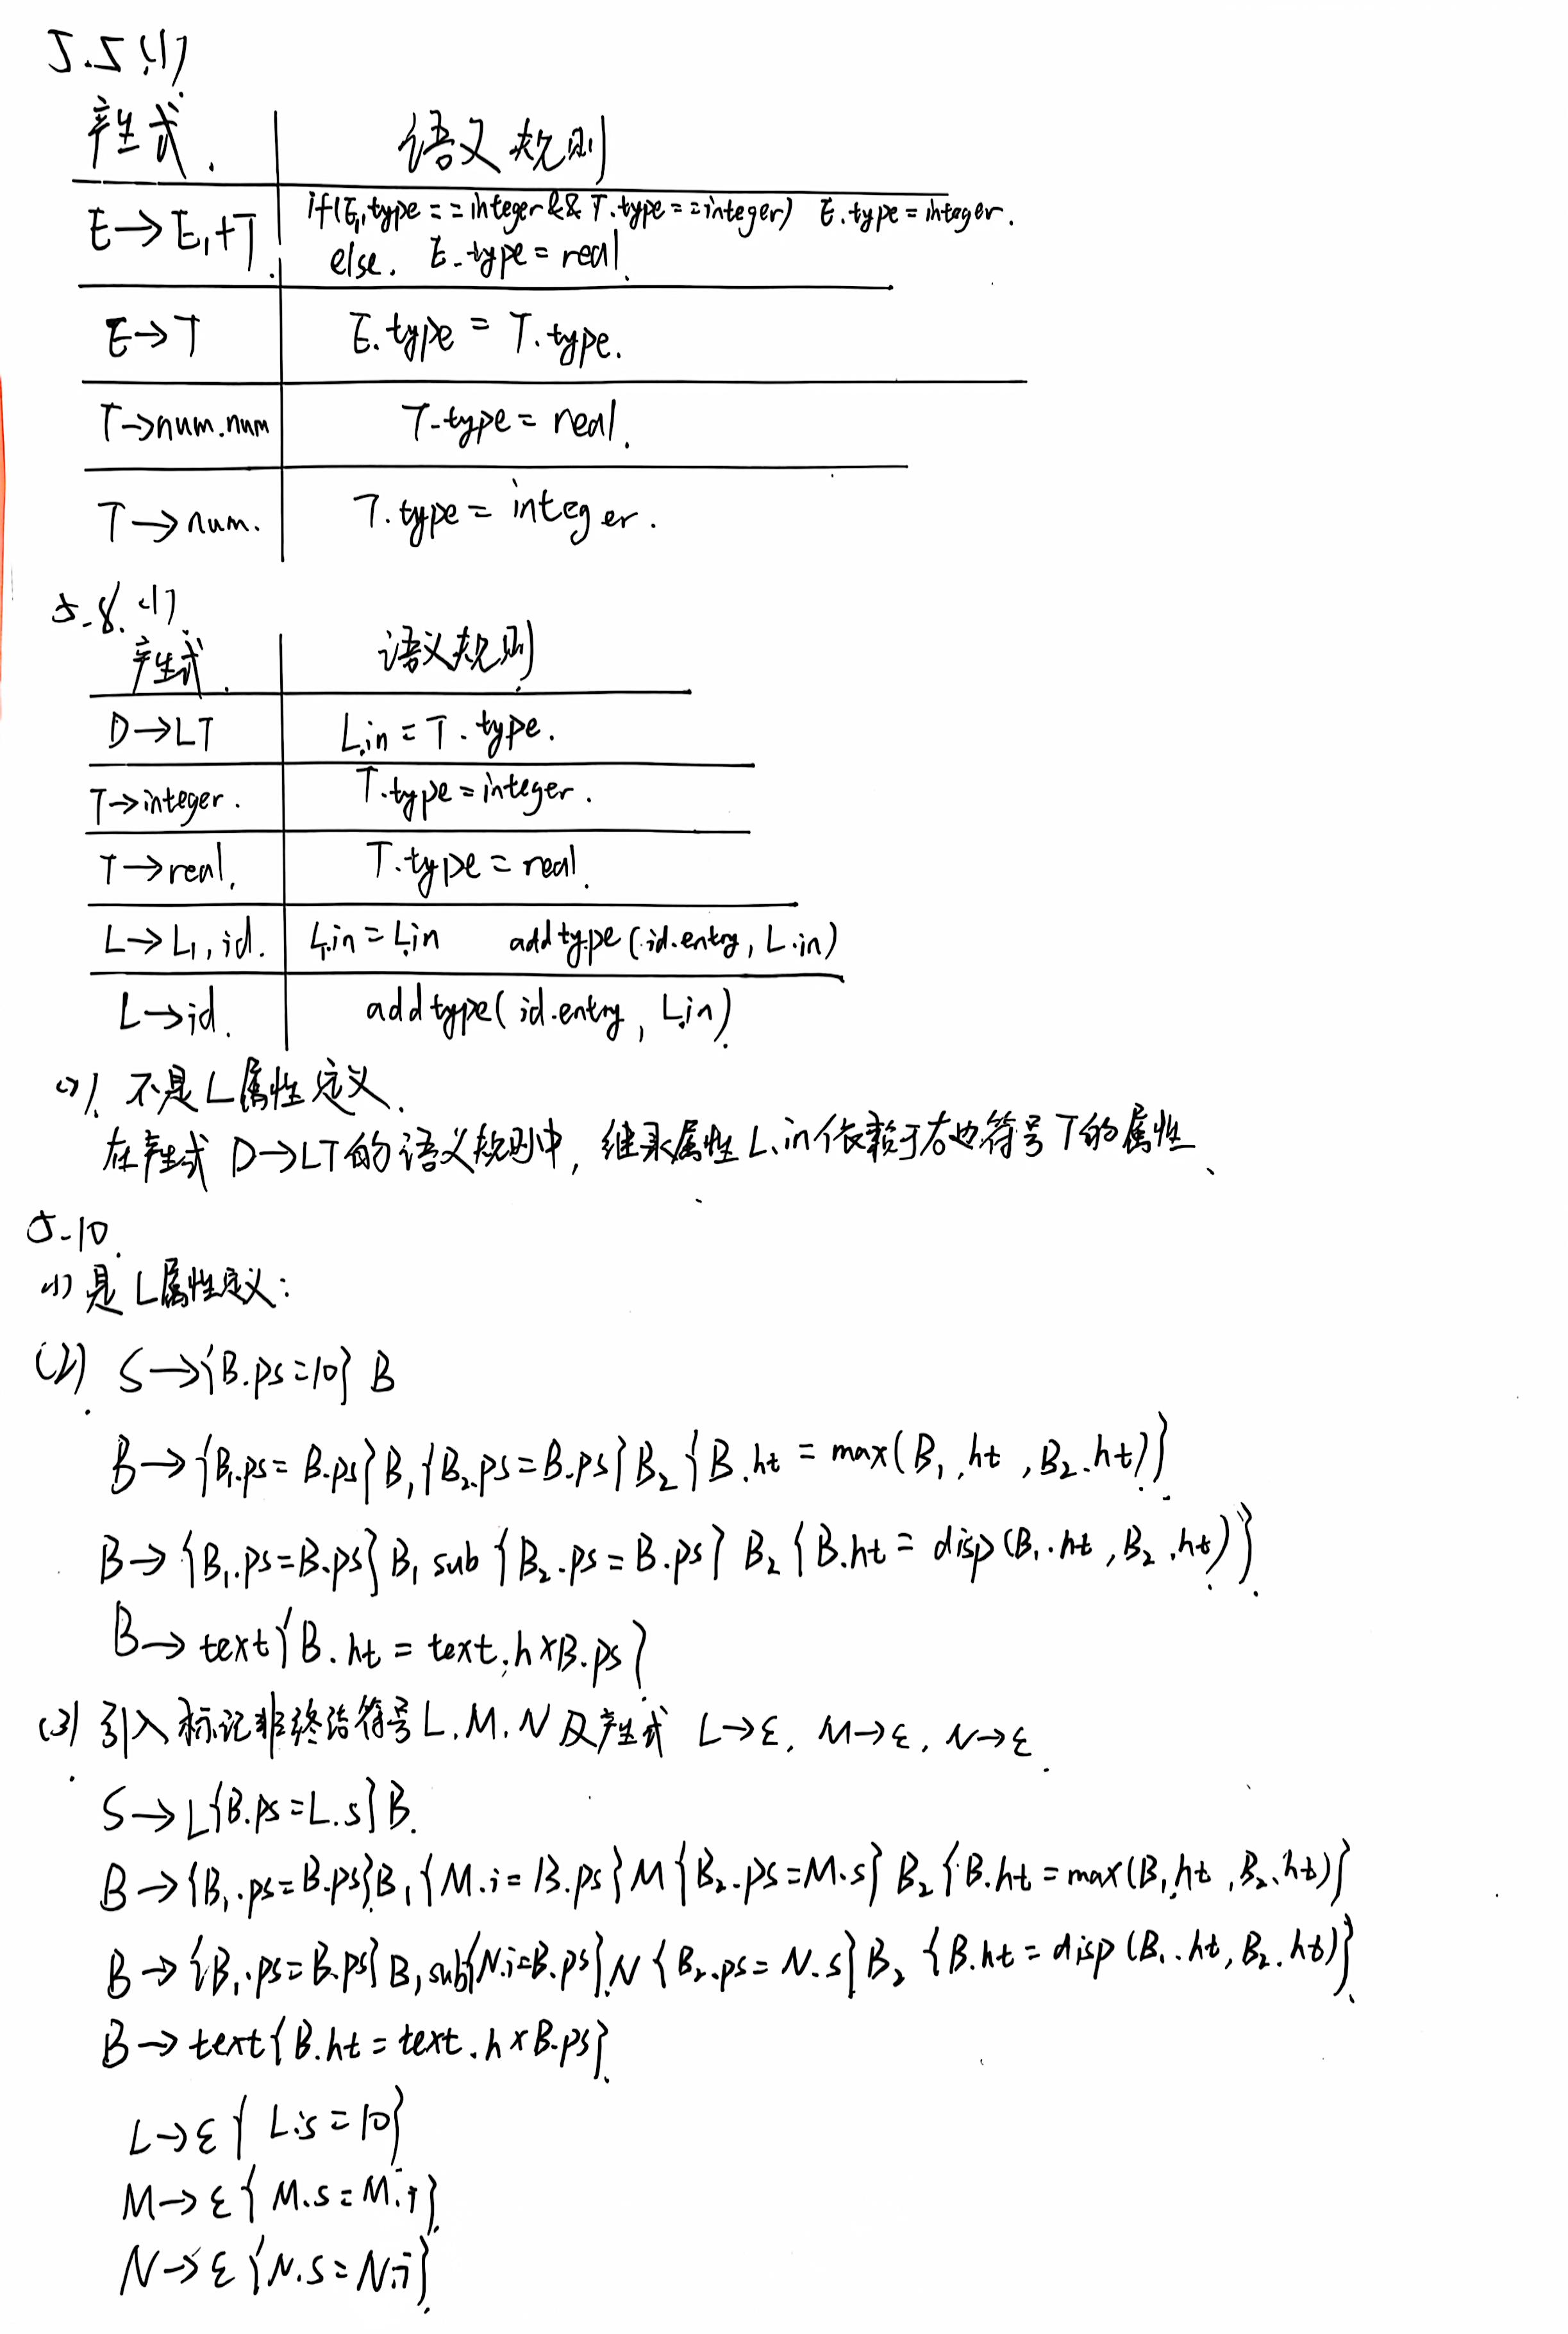 5.5(1)
产生式 语义规则
E→E₁+T if(E₁.type==integer && T.type==integer) E.type=integer.
else. E.type=real.
E→T E.type=T.type.
T→num.num T.type=real.
T→num. T.type=integer.
5.8.(1)
产生式 语义规则
D→LT L.in=T.type.
T→integer. T.type=integer.
T→real. T.type=real.
L→L₁,id. L₁.in=L.in addtype(id.entry, L.in)
L→id. addtype(id.entry, L.in)
(2). 不是L属性定义.
在产生式 D→LT的语义规则中, 继承属性L.in依赖于右边符号T的属性、
5.10.
(1) 是L属性定义:
(2) S→{B.ps=10} B
B→{B₁.ps=B.ps}B₁{B₂.ps=B.ps}B₂{B.ht=max(B₁.ht,B₂.ht)}
B→{B₁.ps=B.ps}B₁ sub {B₂.ps=B.ps} B₂ {B.ht=disp(B₁.ht,B₂.ht)}
B→text{B.ht=text.h×B.ps}
(3) 引入标记非终结符号L.M.N及产生式 L→ε, M→ε, N→ε.
S→L{B.ps=L.s}B.
B→{B₁.ps=B.ps}B₁{M.i=B.ps}M{B₂.ps=M.s} B₂{B.ht=max(B₁.ht,B₂.ht)}
B→{B₁.ps=B.ps}B₁ sub{N.i=B.ps}N{B₂.ps=N.s}B₂ {B.ht=disp(B₁.ht,B₂.ht)}
B→text{B.ht=text.h×B.ps}
L→ε{L.s=10}
M→ε{M.s=M.i}
N→ε{N.s=N.i}